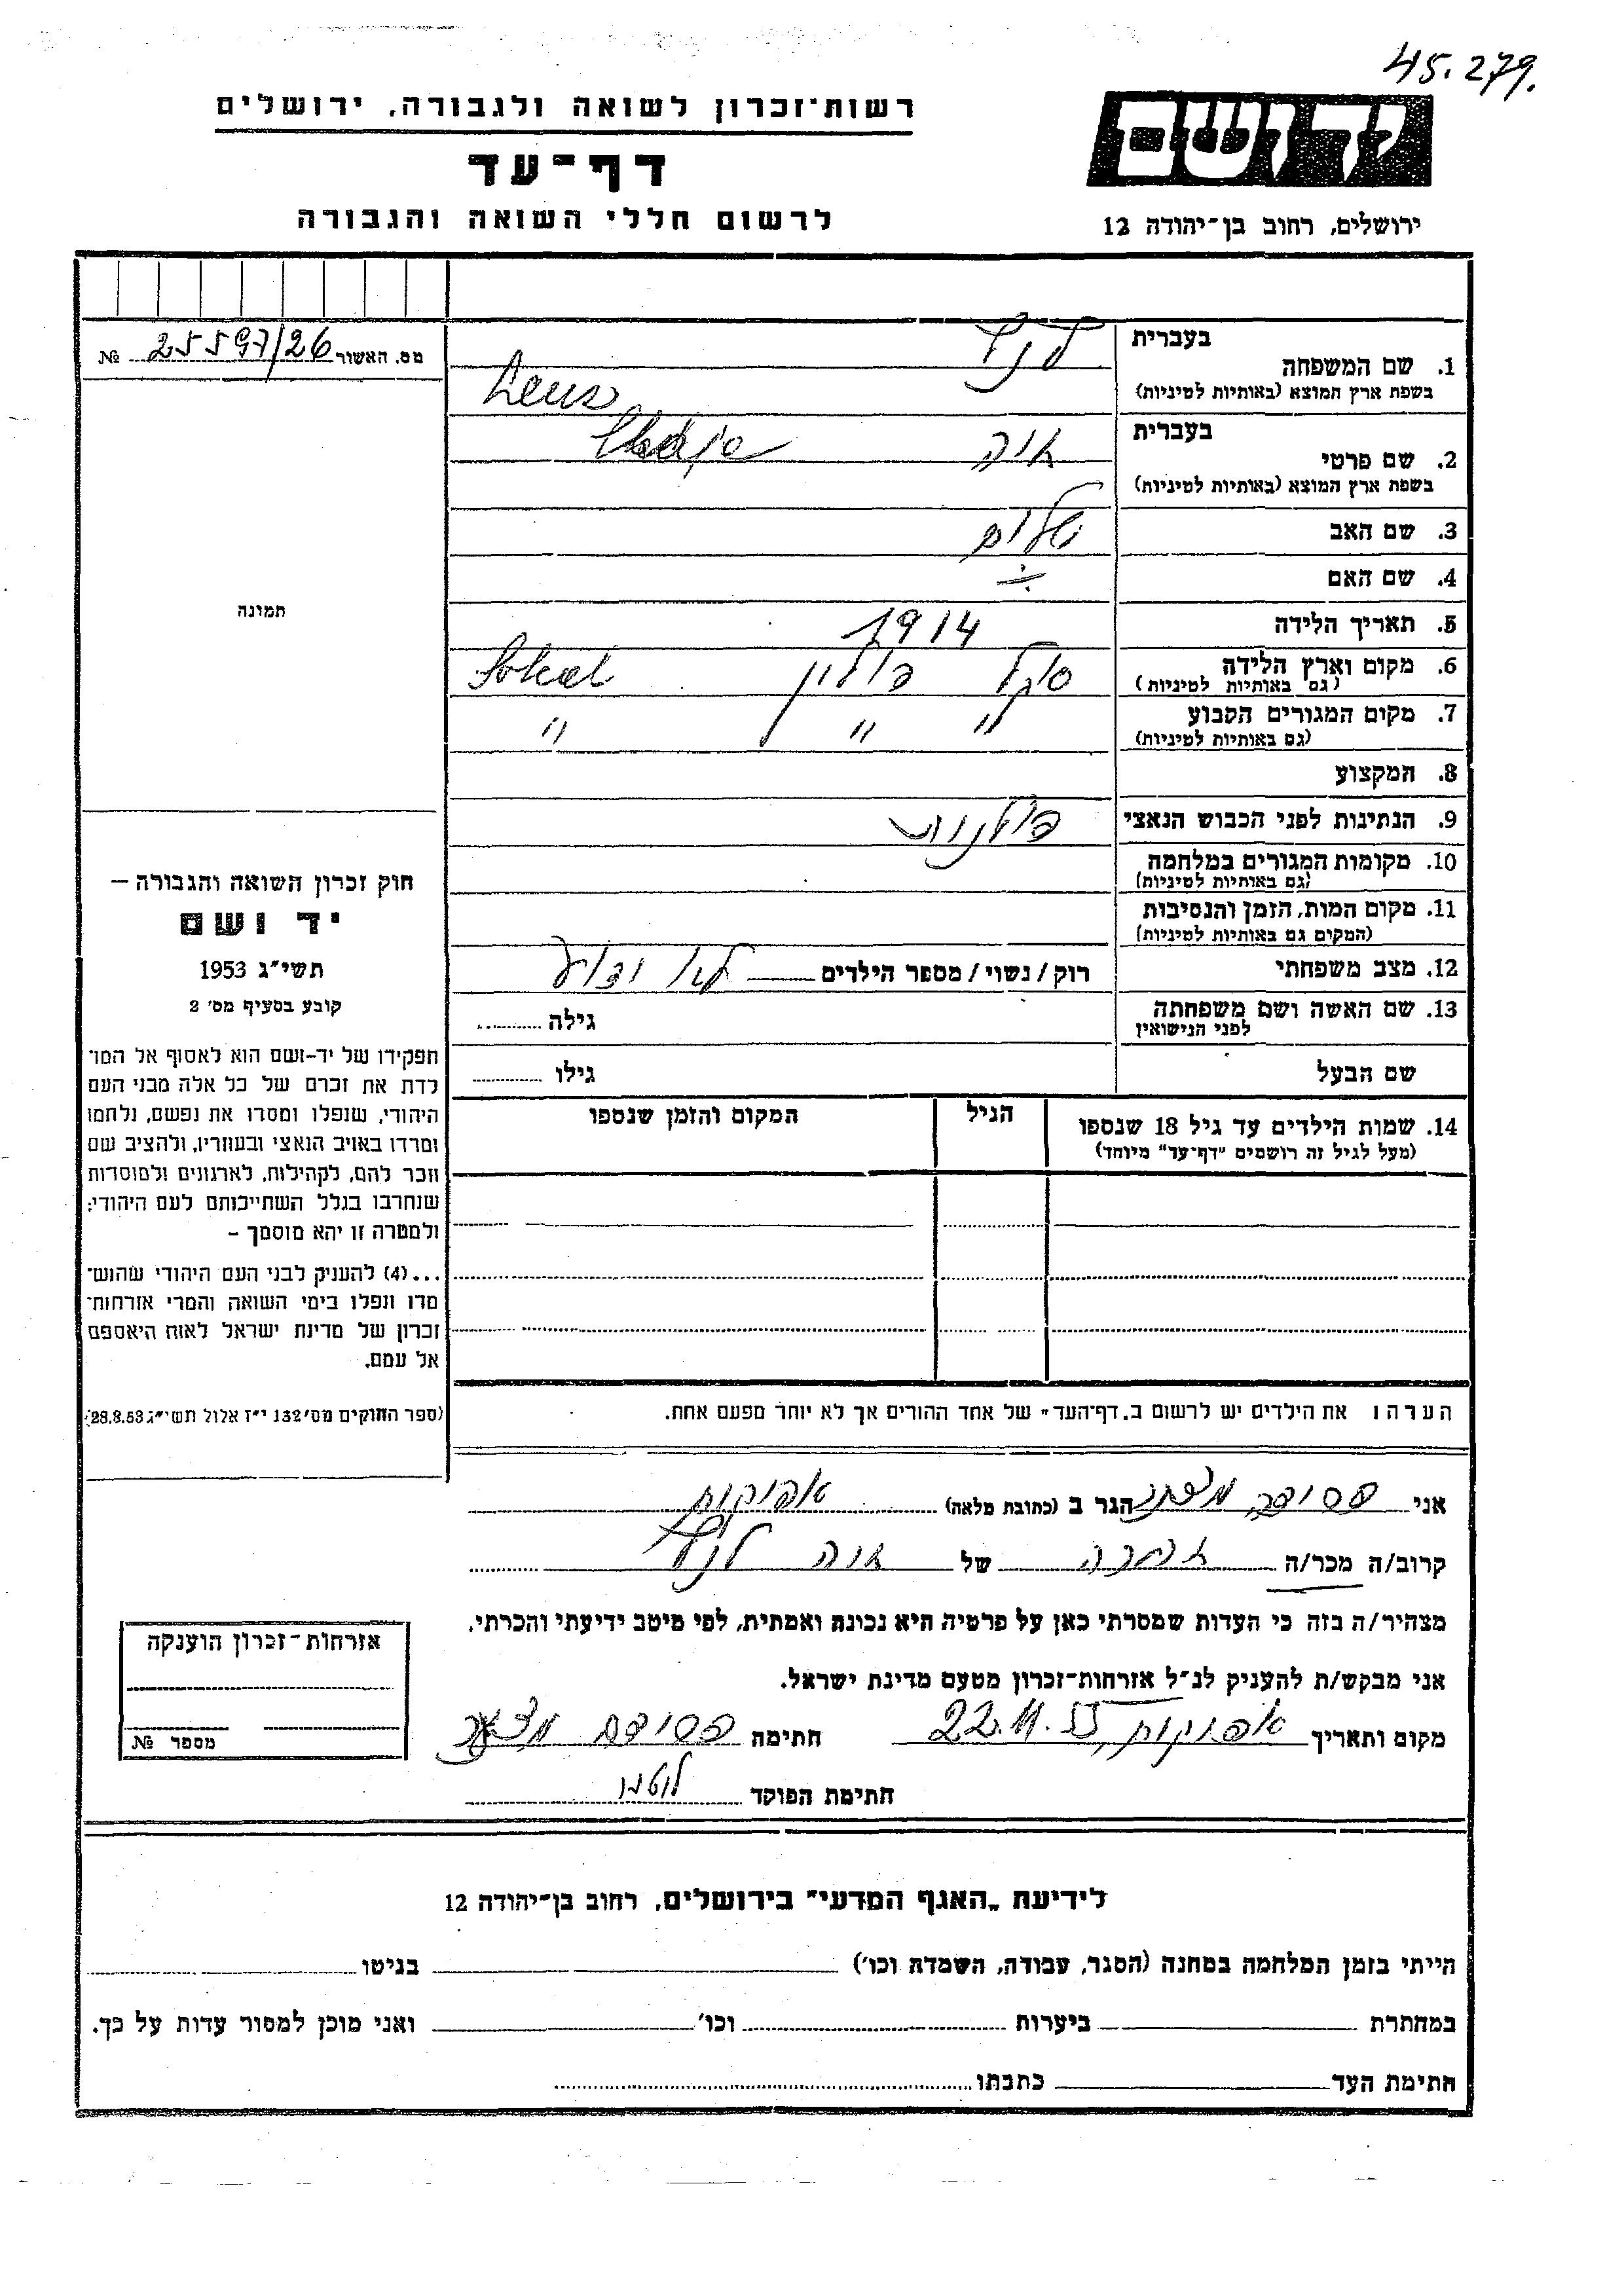 45.279.
רשות-זכרון לשואה ולגבורה, ירושלים
דף-עד
לרשום חללי השואה והגבורה
יד ושם
ירושלים, רחוב בן-יהודה 12
מס. האשור 25597/26 №
בעברית
1. שם המשפחה
בשפת ארץ המוצא (באותיות לטיניות)
בעברית
2. שם פרטי
בשפת ארץ המוצא (באותיות לטיניות)
3. שם האב שלום
4. שם האם ÷
5. תאריך הלידה 1914
6. מקום וארץ הלידה סוקל פולין Sokal
(גם באותיות לטיניות)
7. מקום המגורים הקבוע " " "
(גם באותיות לטיניות)
8. המקצוע
9. הנתינות לפני הכבוש הנאצי פולנית
10. מקומות המגורים במלחמה
(גם באותיות לטיניות)
11. מקום המות, הזמן והנסיבות
(המקום גם באותיות לטיניות)
12. מצב משפחתי רוק/נשוי/מספר הילדים לא ידוע
13. שם האשה ושם משפחתה גילה
לפני הנישואין
שם הבעל גילו
14. שמות הילדים עד גיל 18 שנספו הגיל המקום והזמן שנספו
(מעל לגיל זה רושמים "דף-עד" מיוחד)
הערה: את הילדים יש לרשום ב„דף-העד" של אחד ההורים אך לא יותר מפעם אחת.
תמונה
חוק זכרון השואה והגבורה —
יד ושם
תשי"ג 1953
קובע בסעיף מס' 2
תפקידו של יד-ושם הוא לאסוף אל המו־
לדת את זכרם של כל אלה מבני העם
היהודי, שנפלו ומסרו את נפשם, נלחמו
ומרדו באויב הנאצי ובעוזריו, ולהציב שם
וזכר להם, לקהילות, לארגונים ולמוסדות
שנחרבו בגלל השתייכותם לעם היהודי;
ולמטרה זו יהא מוסמך –
...(4) להעניק לבני העם היהודי שהוש־
מדו ונפלו בימי השואה והמרי אזרחות־
זכרון של מדינת ישראל לאות היאספם
אל עמם.
(ספר החוקים מס' 132 י"ז אלול תשי"ג 28.8.53)
אני הגר ב (כתובת מלאה)
קרוב/ה מכר/ה של
מצהיר/ה בזה כי העדות שמסרתי כאן על פרטיה היא נכונה ואמתית, לפי מיטב ידיעתי והכרתי.
אני מבקש/ת להעניק לנ"ל אזרחות-זכרון מטעם מדינת ישראל.
מקום ותאריך 22.11.55 חתימה
חתימת הפוקד
אזרחות-זכרון הוענקה
מספר №
לידיעת „האגף המדעי" בירושלים, רחוב בן-יהודה 12
הייתי בזמן המלחמה במחנה (הסגר, עבודה, השמדה וכו') בגיטו
במחתרת ביערות וכו' ואני מוכן למסור עדות על כך.
חתימת העד כתבתו